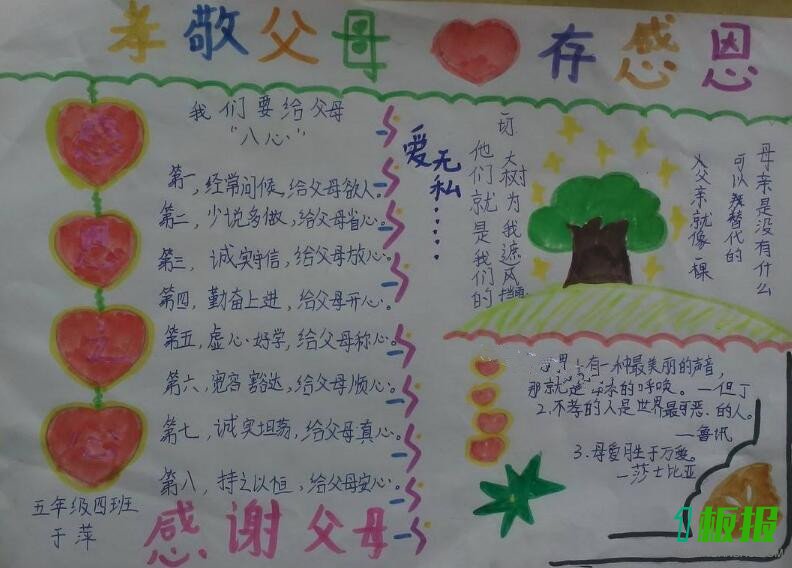 孝敬父母 存感恩
我们要给父母
"八心"
第一,经常问候,给父母欲人。
第二,少说多做,给父母省心。
第三,诚实守信,给父母放心。
第四,勤奋上进,给父母开心。
第五,虚心好学,给父母称心。
第六,宽容豁达,给父母顺心。
第七,诚实坦荡,给父母真心。
第八,持之以恒,给父母安心。
五年级四班
于萍
感谢父母
爱无私……
母亲是没有什么
可以替代的
父亲就像一棵
大树为我遮风挡雨
他们就是我们的
一切
界上有一种最美丽的声音,
那就是母亲的呼唤。—但丁
2.不孝的人是世界最可恶的人。
—鲁讯
3.母爱胜于万爱。
—莎士比亚
板报